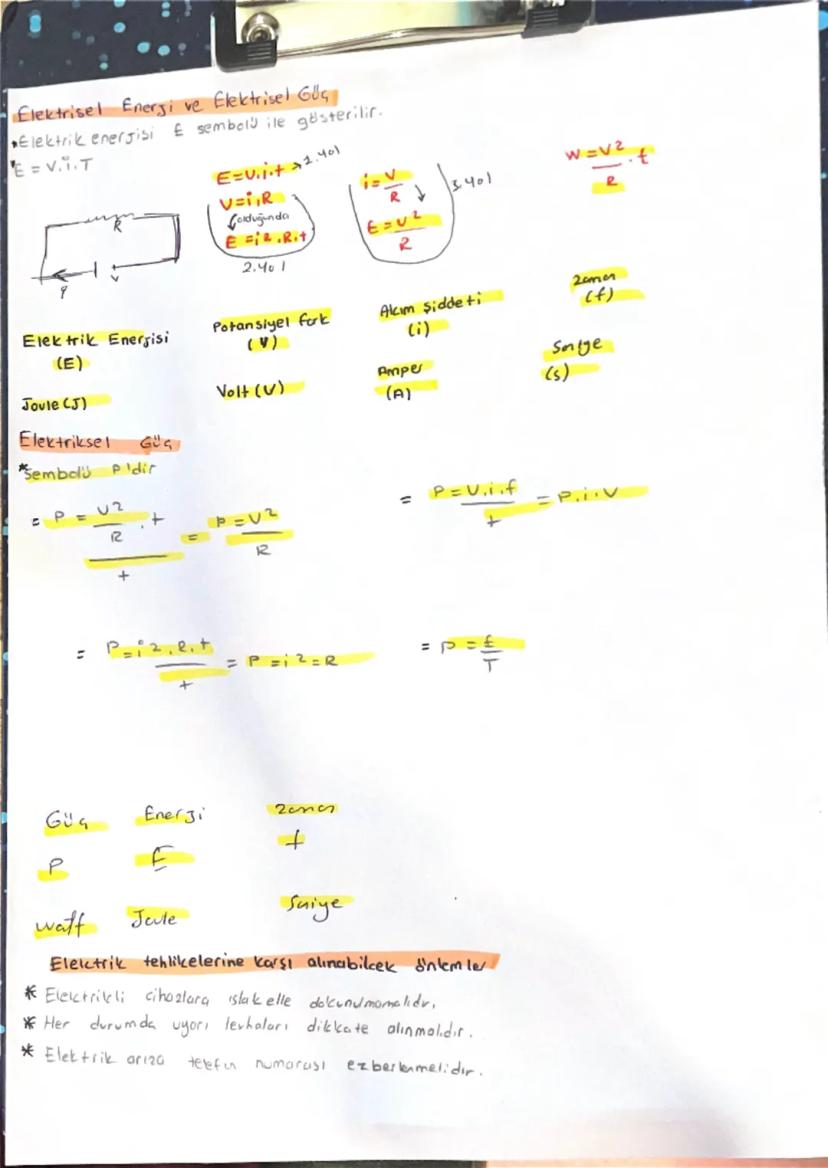 Elektrisel Enerji ve Elektrisel Güç
• Elektrik enerjisi E sembolü ile gösterilir.
• E = V.i.T
E = V.i.t → 1.yol
V = i.R
olduğunda
E = i².R.t
2.yol
i = V/R
E = V²/R
3.yol
W = V²/R . t
R
q
V
Elektrik Enerjisi (E)
Potansiyel fark (V)
Akım şiddeti (i)
Zaman (t)
Joule (J)
Volt (V)
Amper (A)
Saniye (s)
Elektriksel Güç
* Sembolü P'dir
= P = V²/R . t / t = P = V²/R
= P = V.i.t / t = P.i.V
= P = i².R.t / t = P = i² = R
= P = E/T
Güç Enerji Zaman
P E t
Watt Joule Saniye
Elektrik tehlikelerine karşı alınabilcek önlemler
* Elektrikli cihazlara ıslak elle dokunulmamalıdır.
* Her durumda uyarı levhaları dikkate alınmalıdır.
* Elektrik arıza telefon numarası ezberlenmelidir.